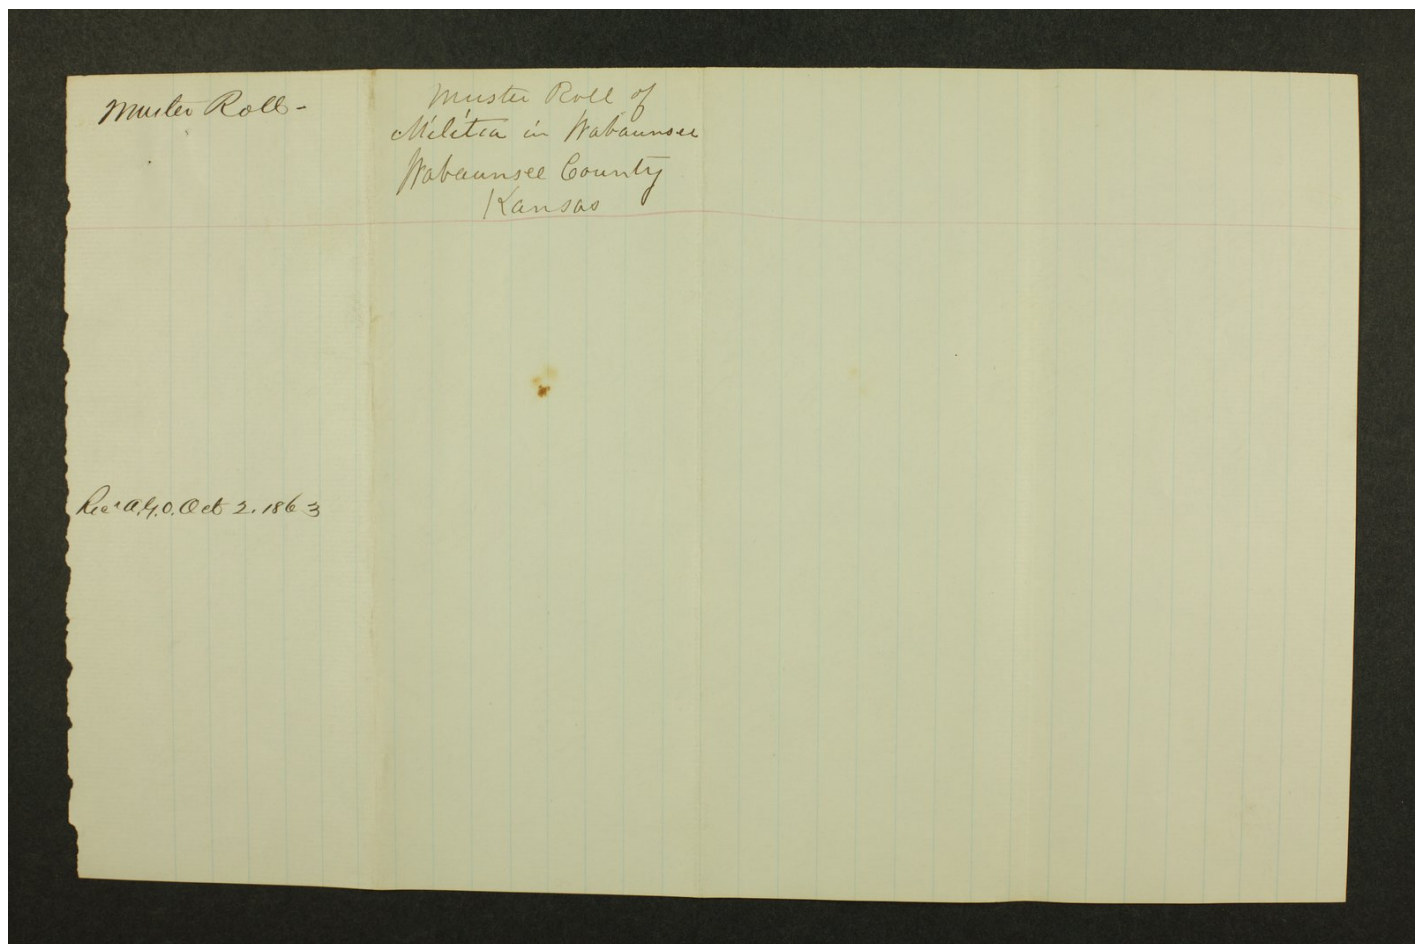 Muster Roll -
Muster Roll of
Militia in Wabaunsee
Wabaunsee County
Kansas
Rec'd A.G.O. Oct 2. 1863